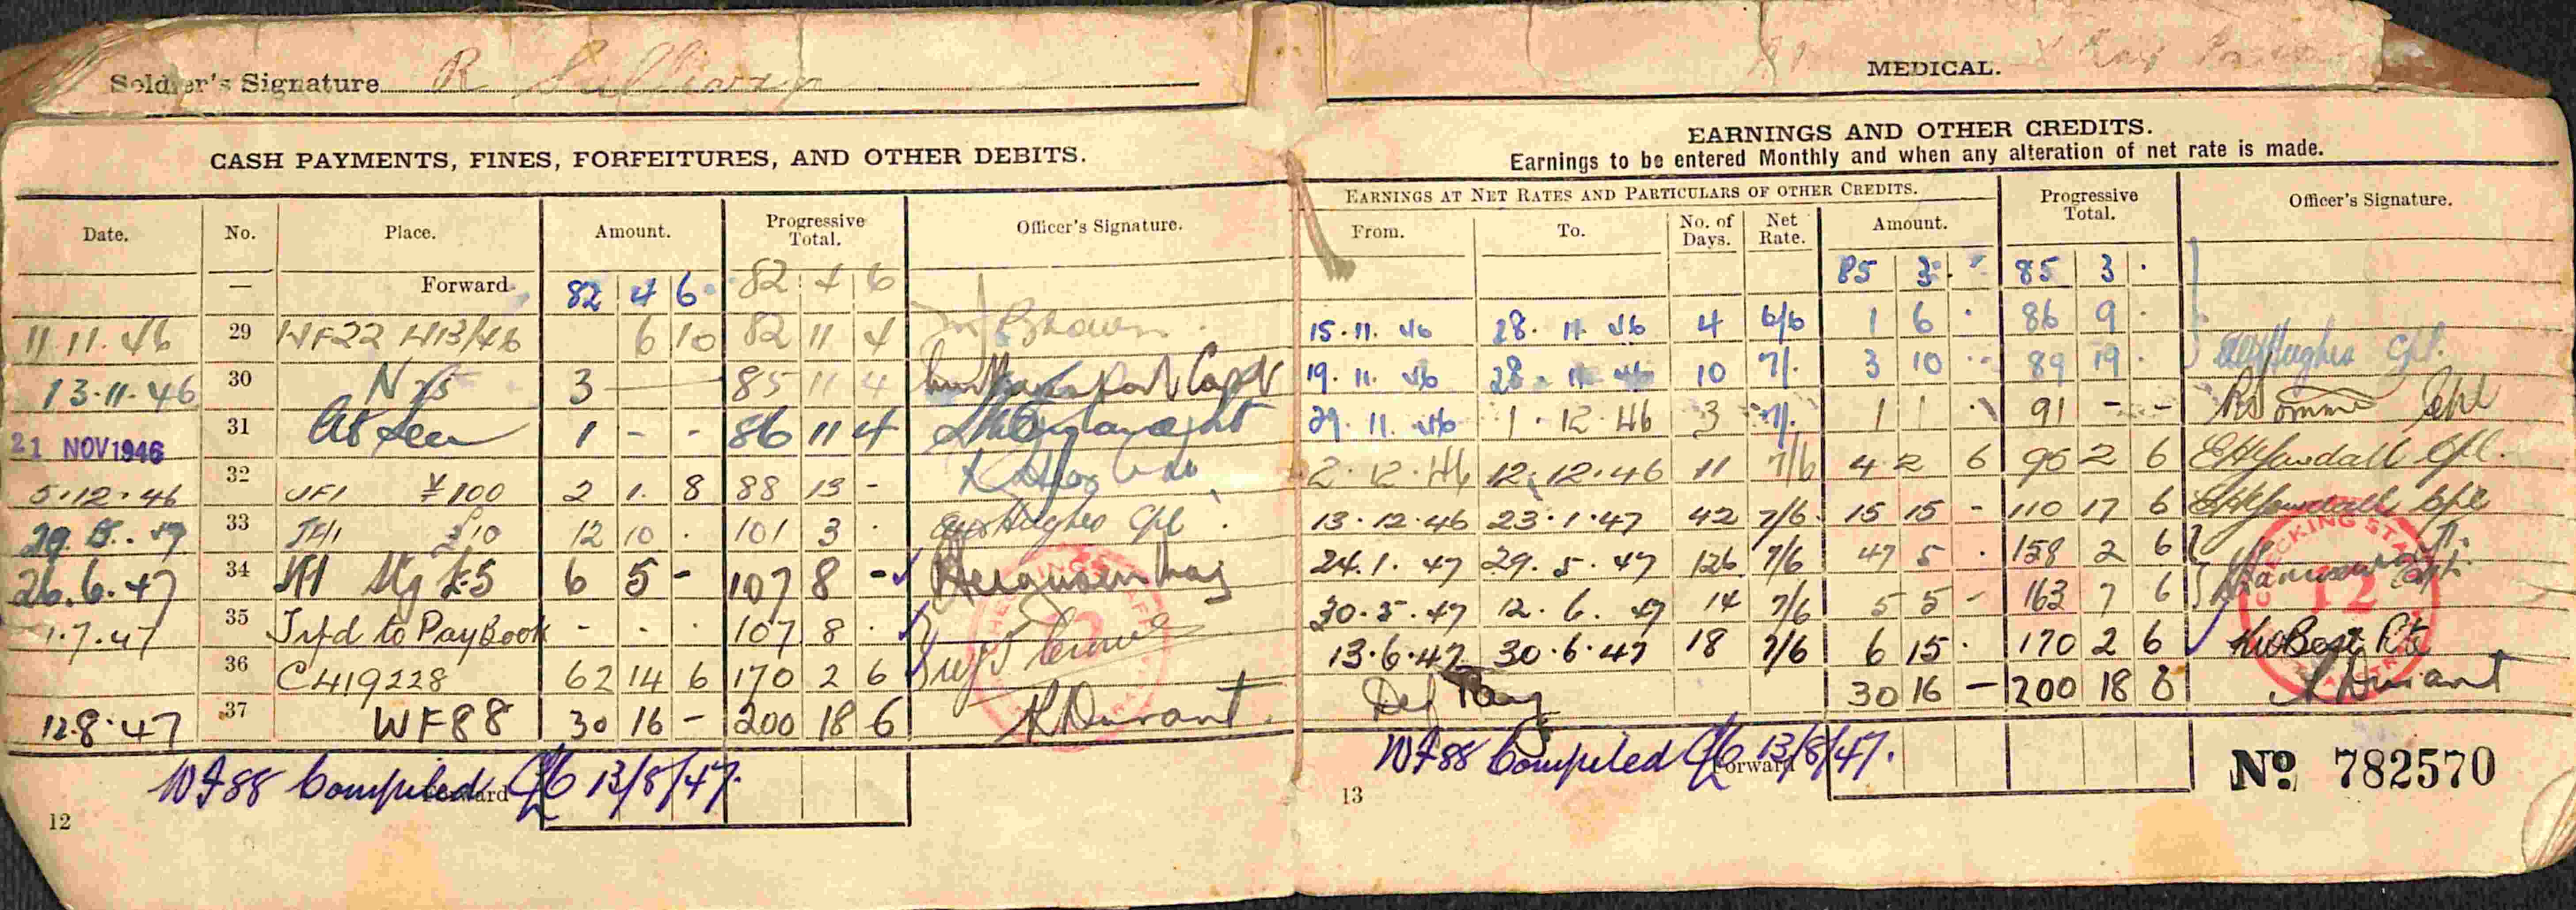 Soldier's Signature R Sullivan
CASH PAYMENTS, FINES, FORFEITURES, AND OTHER DEBITS.
Date. No. Place. Amount. Progressive Total. Officer's Signature.
— Forward 82 4 6 82 4 6
11.11.46 29 WF22 H13/46 6 10 82 11 4
13.11.46 30 N 25 3 — 85 11 4 Capt
21 NOV 1946 31 At Sea 1 - - 86 11 4
5.12.46 32 JF1 ¥100 2 1. 8 88 13 -
29.5.47 33 JF1 £10 12 10 . 101 3 . Hughes Cpl.
26.6.47 34 JF1 Stg £5 6 5 - 107 8 -
1.7.47 35 Trfd to PayBook - . . 107 8 .
36 C419228 62 14 6 170 2 6
12.8.47 37 WF88 30 16 - 200 18 6 K Durant.
WF88 Compiled 13/8/47.
Forward
12
MEDICAL.
EARNINGS AND OTHER CREDITS.
Earnings to be entered Monthly and when any alteration of net rate is made.
EARNINGS AT NET RATES AND PARTICULARS OF OTHER CREDITS. Progressive Total. Officer's Signature.
From. To. No. of Days. Net Rate. Amount.
85 3 . - 85 3 .
15.11.46 28.11.46 4 6/6 1 6 . 86 9 .
19.11.46 28.11.46 10 7/. 3 10 - 89 19 . Hughes Cpl.
29.11.46 1.12.46 3 7/. 1 1 . 91 - -
2.12.46 12.12.46 11 7/6 4 2 6 95 2 6 Cpl.
13.12.46 23.1.47 42 7/6 15 15 - 110 17 6 Cpl
24.1.47 29.5.47 126 7/6 47 5 . 158 2 6
30.5.47 12.6.47 14 7/6 5 5 - 163 7 6
13.6.47 30.6.47 18 7/6 6 15 . 170 2 6 Pte
Def Pay 30 16 - 200 18 6 K Durant
CHECKING STAFF
12
WF88 Compiled 13/8/47.
Forward
13
No 782570